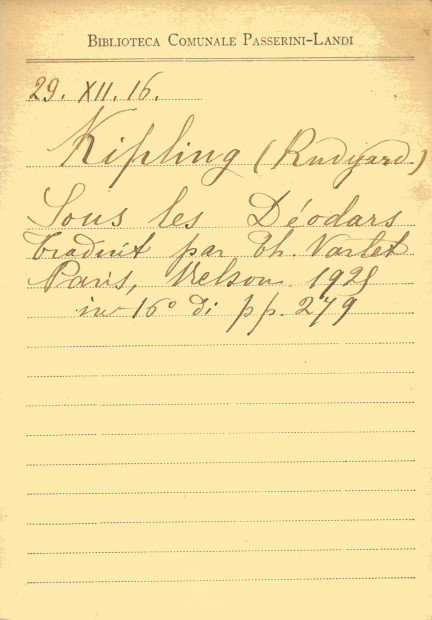 BIBLIOTECA COMUNALE PASSERINI-LANDI
29. XII. 16.
Kipling (Rudyard)
Sous les Déodars
traduit par Th. Varlet
Paris, Nelson 1928
in 16° di pp. 279